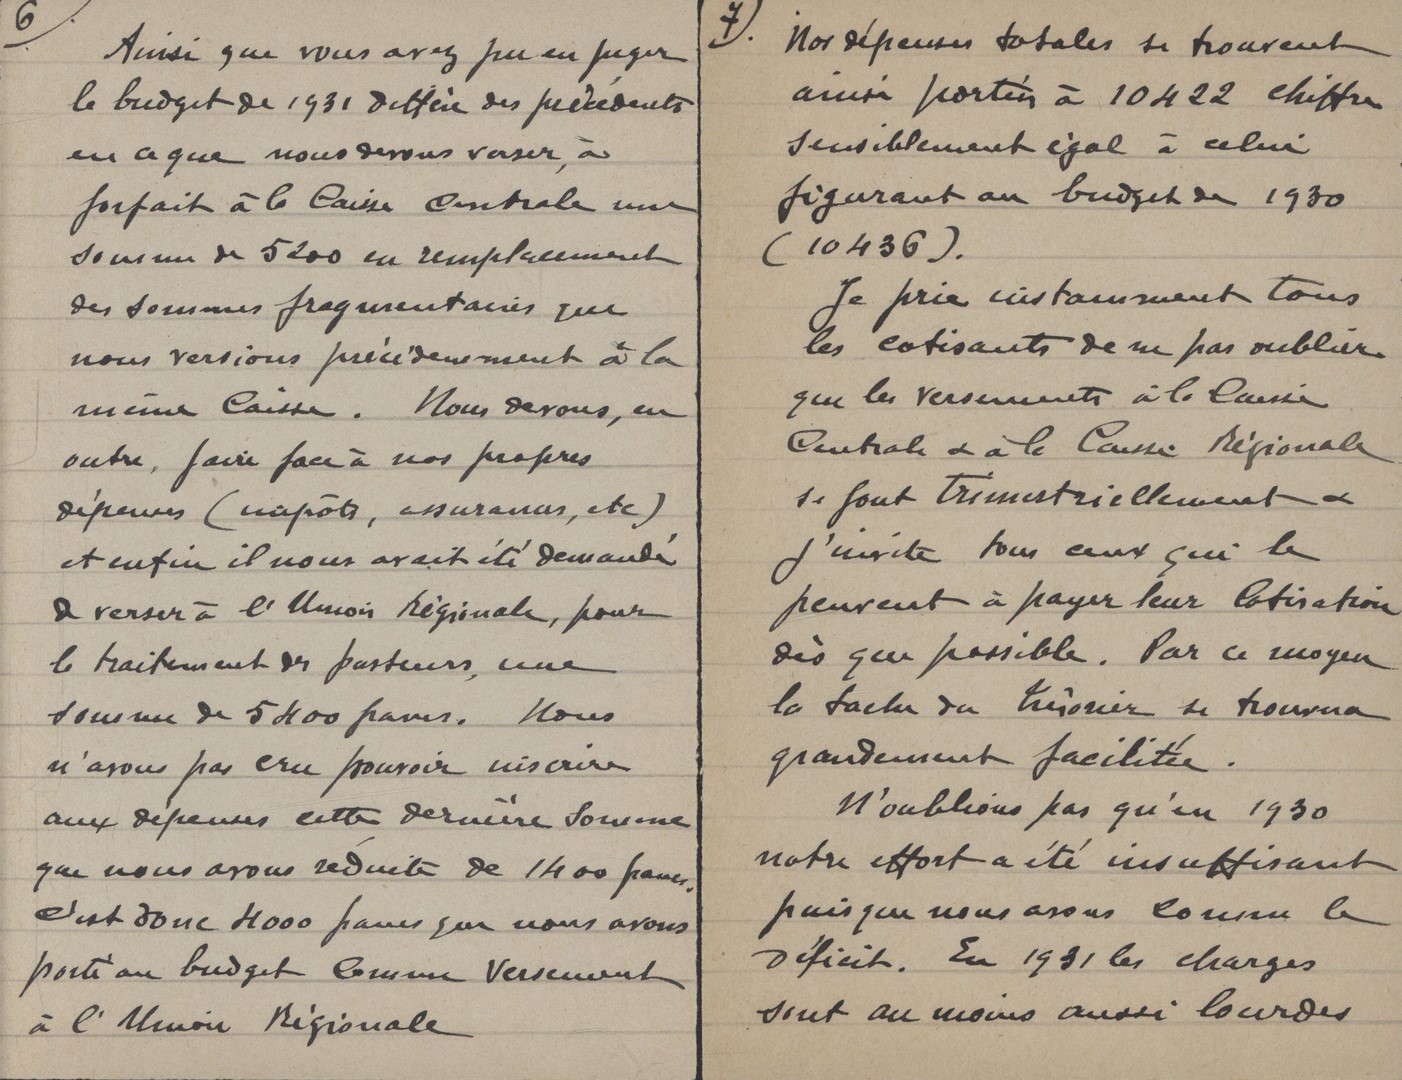 6)
Ainsi que vous avez pu en juger
le budget de 1931 diffère des précédents
en ce que nous devons verser, à
forfait à la Caisse Centrale une
somme de 5200 en remplacement
des sommes fragmentaires que
nous versions précédemment à la
même Caisse. Nous devons, en
outre, faire face à nos propres
dépenses (impôts, assurances, etc)
et enfin il nous avait été demandé
de verser à l'Union Régionale, pour
le traitement des pasteurs, une
somme de 5400 francs. Nous
n'avons pas cru pouvoir inscrire
aux dépenses cette dernière somme
que nous avons réduite de 1400 francs.
C'est donc 4000 francs que nous avons
porté au budget comme versement
à l'Union Régionale
7).
Nos dépenses totales se trouvent
ainsi portées à 10422 chiffre
sensiblement égal à celui
figurant au budget de 1930
(10436).
Je prie instamment tous
les cotisants de ne pas oublier
que les versements à la Caisse
Centrale & à la Caisse Régionale
se font trimestriellement &
j'invite tous ceux qui le
peuvent à payer leur cotisation
dès que possible. Par ce moyen
la tache du trésorier se trouvera
grandement facilitée.
N'oublions pas qu'en 1930
notre effort a été insuffisant
puisque nous avons connu le
déficit. En 1931 les charges
sont au moins aussi lourdes